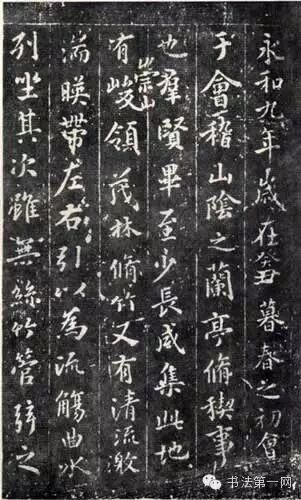 永和九年歲在癸丑暮春之初會
于會稽山陰之蘭亭脩稧事
也羣賢畢至少長咸集此地
有崇山峻領茂林脩竹又有清流激
湍暎帶左右引以為流觴曲水
列坐其次雖無絲竹管弦之
书法第一网